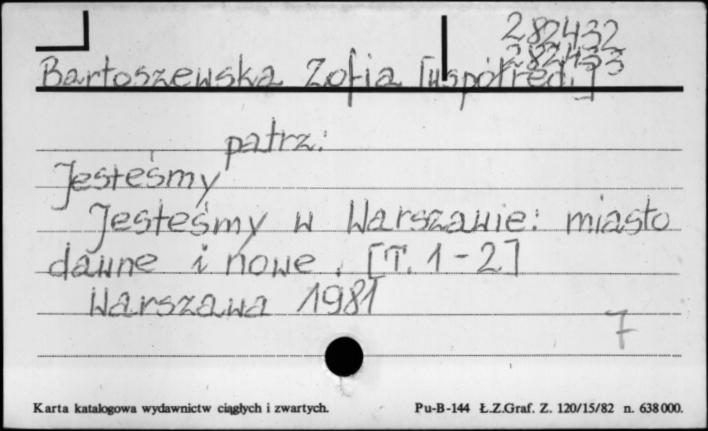 282432
282433
Bartoszewska Zofia [współred.]
patrz:
Jesteśmy
Jesteśmy w Warszawie: miasto
dawne i nowe. [T. 1-2]
Warszawa 1981
7
Karta katalogowa wydawnictw ciągłych i zwartych. Pu-B-144 Ł.Z.Graf. Z. 120/15/82 n. 638000.